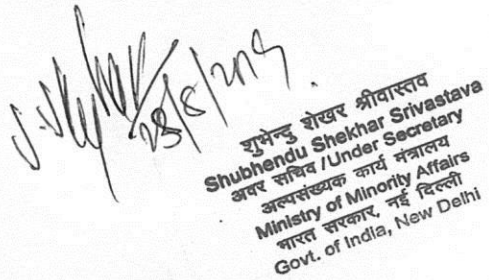 28/8/2019
शुभेन्दु शेखर श्रीवास्तव
Shubhendu Shekhar Srivastava
अवर सचिव /Under Secretary
अल्पसंख्यक कार्य मंत्रालय
Ministry of Minority Affairs
भारत सरकार, नई दिल्ली
Govt. of India, New Delhi